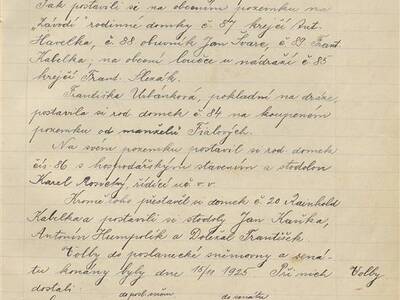 Tak postavili si na obecním pozemku na
„Závodí" rodinné domky č. 87 krejčí Ant.
Havelka, č. 88 obuvník Jan Švare, č. 89 Frant.
Kabelka; na obecní loučce u nádraží č. 85
krejčí Frant. Slezák.
Františka Urbánková, pokladní na dráze,
postavila si rod. domek č. 84 na koupeném
pozemku od manželů Fialových.
Na svém pozemku postavil si rod. domek
čís. 86 s hospodářským stavením a stodolou
Karel řídící uč. v. v.
Kromě toho přestavil si domek č. 20 Rainhold
Kabelka a postavili si stodoly Jan Kaňka,
Antonín Humpolík a Doležal František.
Volby do poslanecké sněmovny a sená-
tu konány byly dne 15/11 1925. Při nich Volby
dostali: do posl. sněm. do senátu